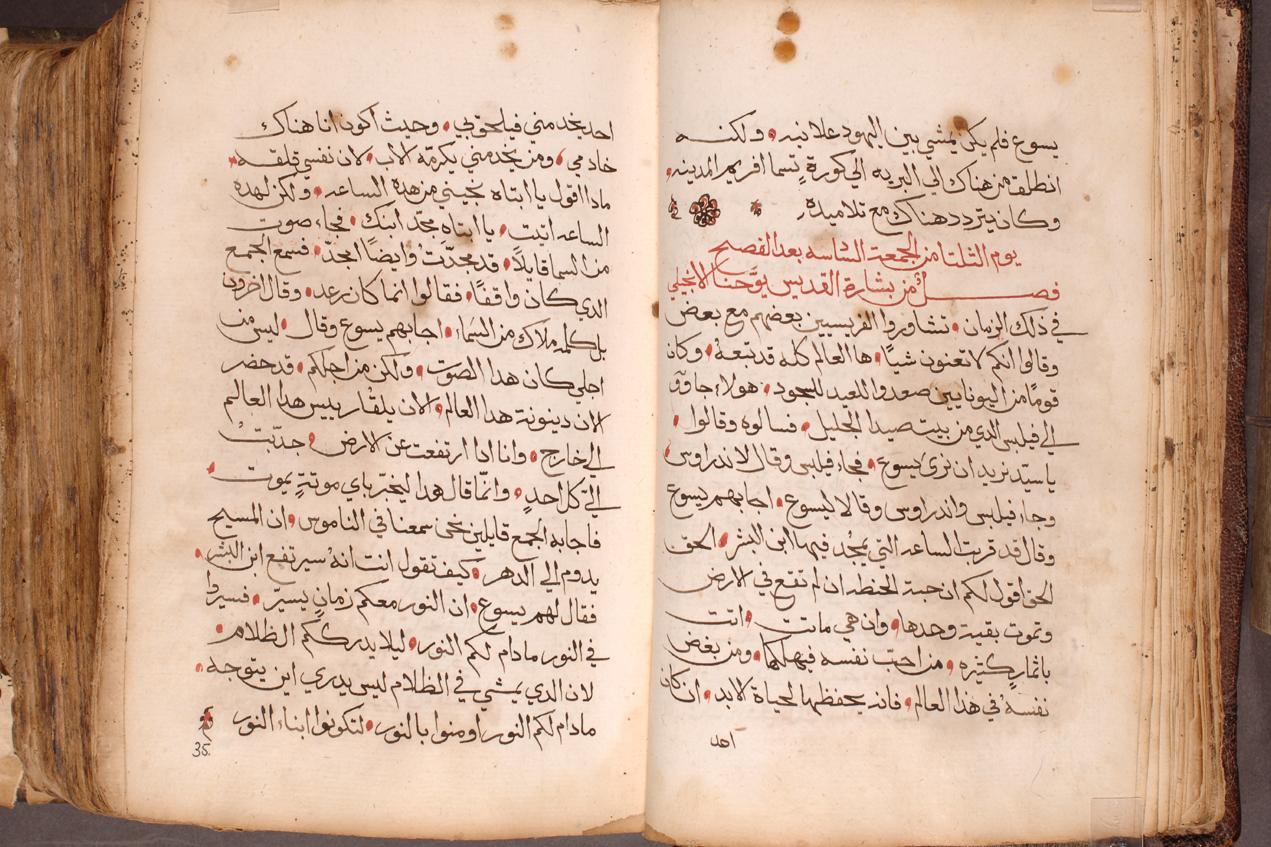 يسوع فلم يكن يمشي بين اليهود علانيه ولكنه
انطلق من هناك الي البريه الي كورةٍ تسما افريم المدينه
وكان يتردد هناك مع تلاميده
يوم الثلثا من الجمعة السادسه بعد الفصيح
فصــل من بشارة القديس يوحنا الانجيلي
في ذلك الزمان تشاوروا الفريسيين بعضهم مع بعض
وقالوا انكم لا تغنون شياً ها العالم كله قد تبعه وكان
قوماً من اليونانيين صعدوا للعيد للسجود هولاء جاووا
الي فيلبس الدي من بيت صيدا الجليل فسالوه وقالوا
ياسيد نريد ان نري يسوع فجاء فيلبس وقال لاندراوس
وجاء فيلبس واندراوس وقالا ليسوع اجابهم يسوع
وقال قد قربت الساعه التي يمجد فيها ابن البشر الحق
الحق اقول لكم ان حبة الحنطه ان لم تقع في الارض
وتموت بقيت وحدها وان هي ماتت اتت
باثمارٍ كثيره من احبّ نفسه فيهلكها ومن بغض
نفسهُ في هذا العالم فانه يحفظها لحياة الابد ان كان
احد
احد يخدمني فيلحق بي وحيث اكون انا هناك
خادمي ومن يخدمني يكرمه الاب الان نفسي قلقه
مادا اقول يا ابتاه نجيني من هده الساعه ولكن لهده
الساعه اتيت يا ابتاهِ مجّد ابنك فجاء صوت
من السما قايلاً قد مجّدت وايضاً امجدّ فسمع الجمع
الدي كان واقفاً فقالوا انما كان رعد وقال اخرون
بل كلمه ملاك من السماء اجابهم يسوع وقال ليس من
اجلي كان هدا الصوت ولكن من اجلكم قد حضر
الان دينونة هدا العالم الان يلقا رييس هدا العالم
الي خارج وانا ادا ارتفعت عن الارض جدبتُ
اليّ كل احدٍ وانمّا قال هدا ليخبر باي موتةٍ يموت
فاجابه الجمع قايلين نحن سمعنا في الناموس ان المسيح
يدوم الي الدهر كيف تقول انت انهُ سيرتفع ابن البشر
فقال لهم يسوع ان النور معكم زمانٍ يسيرّ فسيروا
في النور مادام لكم النور ليلا يدرككم الظلام
لان الدي يمشي في الظلام ليس يدري اين يتوجه
مادام لكم النور اومنوا بالنور لتكونوا ابناء النور
35